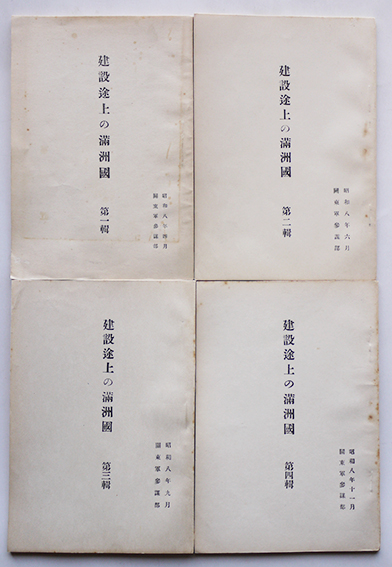 建設途上の滿洲國 第一輯
昭和八年四月
關東軍參謀部
建設途上の滿洲國 第二輯
昭和八年六月
關東軍參謀部
建設途上の滿洲國 第三輯
昭和八年九月
關東軍參謀部
建設途上の滿洲國 第四輯
昭和八年十一月
關東軍參謀部